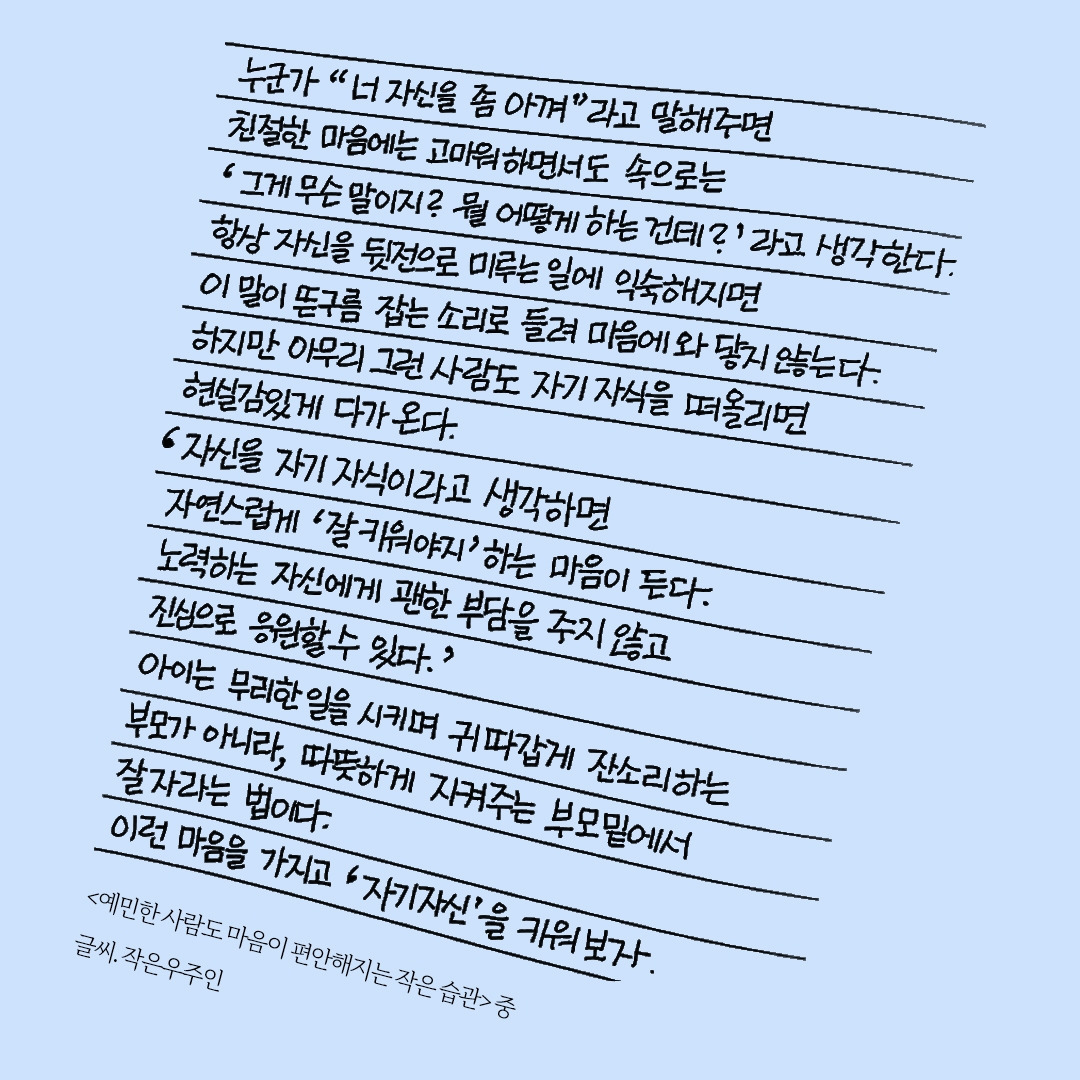 누군가 “너 자신을 좀 아껴”라고 말해주면
친절한 마음에는 고마워하면서도 속으로는
‘그게 무슨 말이지? 뭘 어떻게 하는 건데?’라고 생각한다.
항상 자신을 뒷전으로 미루는 일에 익숙해지면
이 말이 뜬구름 잡는 소리로 들려 마음에 와 닿지 않는다.
하지만 아무리 그런 사람도 자기 자식을 떠올리면
현실감있게 다가온다.
‘자신을 자기 자식이라고 생각하면
자연스럽게 ‘잘 키워야지’ 하는 마음이 든다.
노력하는 자신에게 괜한 부담을 주지 않고
진심으로 응원할 수 있다.’
아이는 무리한 일을 시키며 귀 따갑게 잔소리하는
부모가 아니라, 따뜻하게 지켜주는 부모밑에서
잘 자라는 법이다.
이런 마음을 가지고 ‘자기자신’을 키워보자.
<예민한 사람도 마음이 편안해지는 작은 습관> 중
글씨. 작은우주인